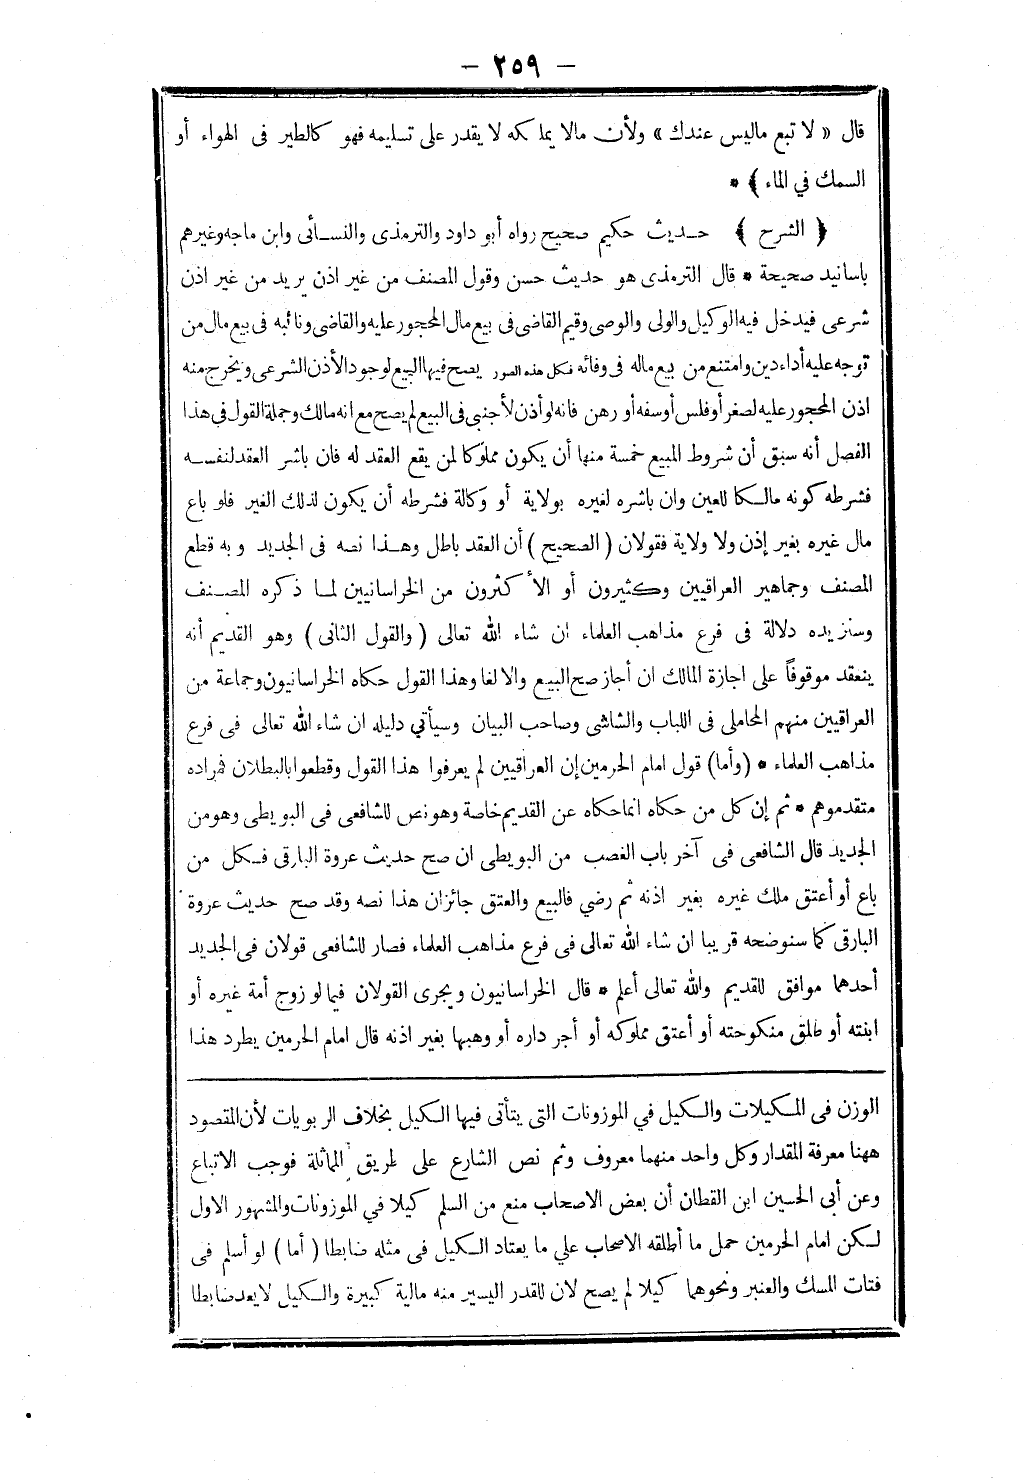 - ٢٥٩ -
قال « لا تبع ماليس عندك » ولأن مالا يملكه لا يقدر على تسليمه فهو كالطير فى الهواء أو
السمك في الماء ﴾ *
﴿ الشرح ﴾ حديث حكيم صحيح رواه أبو داود والترمذى والنسائى وابن ماجه وغيرهم
باسانيد صحيحة * قال الترمذى هو حديث حسن وقول المصنف من غير اذن يريد من غير اذن
شرعى فيدخل فيه الوكيل والولى والوصى وقيم القاضى فى بيع مال المحجور عليه والقاضى ونائبه فى بيع مال من
توجه عليه أداء دين وامتنع من بيع ماله فى وفائه فكل هذه الصور يصح فيها البيع لوجود الأذن الشرعى ويخرج منه
اذن المحجور عليه لصغر أو فلس أو سفه أو رهن فانه لو أذن لأجنبى فى البيع لم يصح مع انه مالك وجملة القول فى هذا
الفصل أنه سبق أن شروط المبيع خمسة منها أن يكون مملوكا لمن يقع العقد له فان باشر العقد لنفسه
فشرطه كونه مالكا للعين وان باشره لغيره بولاية أو وكالة فشرطه أن يكون لذلك الغير فلو باع
مال غيره بغير إذن ولا ولاية فقولان ( الصحيح ) أن العقد باطل وهذا نصه فى الجديد وبه قطع
المصنف وجماهير العراقيين وكثيرون أو الأكثرون من الخراسانيين لما ذكره المصنف
وسنزيده دلالة فى فرع مذاهب العلماء ان شاء الله تعالى ( والقول الثانى ) وهو القديم أنه
ينعقد موقوفاً على اجازة المالك ان أجاز صح البيع والا لغا وهذا القول حكاه الخراسانيون وجماعة من
العراقيين منهم المحاملى فى اللباب والشاشى وصاحب البيان وسيأتي دليله ان شاء الله تعالى فى فرع
مذاهب العلماء * (وأما) قول امام الحرمين إن العراقيين لم يعرفوا هذا القول وقطعوا بالبطلان فمراده
متقدموهم * ثم إن كل من حكاه انما حكاه عن القديم خاصة وهو نص للشافعى فى البويطى وهو من
الجديد قال الشافعى فى آخر باب الغصب من البويطى ان صح حديث عروة البارقى فكل من
باع أو أعتق ملك غيره بغير اذنه ثم رضي فالبيع والعتق جائزان هذا نصه وقد صح حديث عروة
البارقى كما سنوضحه قريبا ان شاء الله تعالى فى فرع مذاهب العلماء فصار للشافعى قولان فى الجديد
أحدهما موافق للقديم والله تعالى أعلم * قال الخراسانيون ويجرى القولان فيما لو زوج أمة غيره أو
ابنته أو طلق منكوحته أو أعتق مملوكه أو أجر داره أو وهبها بغير اذنه قال امام الحرمين يطرد هذا
الوزن فى المكيلات والكيل في الموزونات التى يتأتى فيها الكيل بخلاف الربويات لأن المقصود
ههنا معرفة المقدار وكل واحد منهما معروف وثم نص الشارع على طريق المماثلة فوجب الاتباع
وعن أبى الحسين ابن القطان أن بعض الاصحاب منع من السلم كيلا في الموزونات والمشهور الاول
لكن امام الحرمين حمل ما أطلقه الاصحاب علي ما يعتاد الكيل فى مثله ضابطا ( أما ) لو أسلم فى
فتات المسك والعنبر ونحوهما كيلا لم يصح لان للقدر اليسير منه مالية كبيرة والكيل لا يعد ضابطا